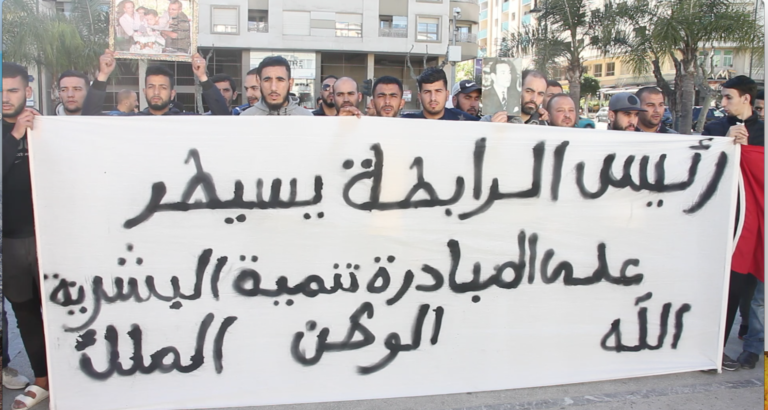 رئيس الرابطة يسيطر
على المبادرة تنمية البشرية
الله الوطن الملك